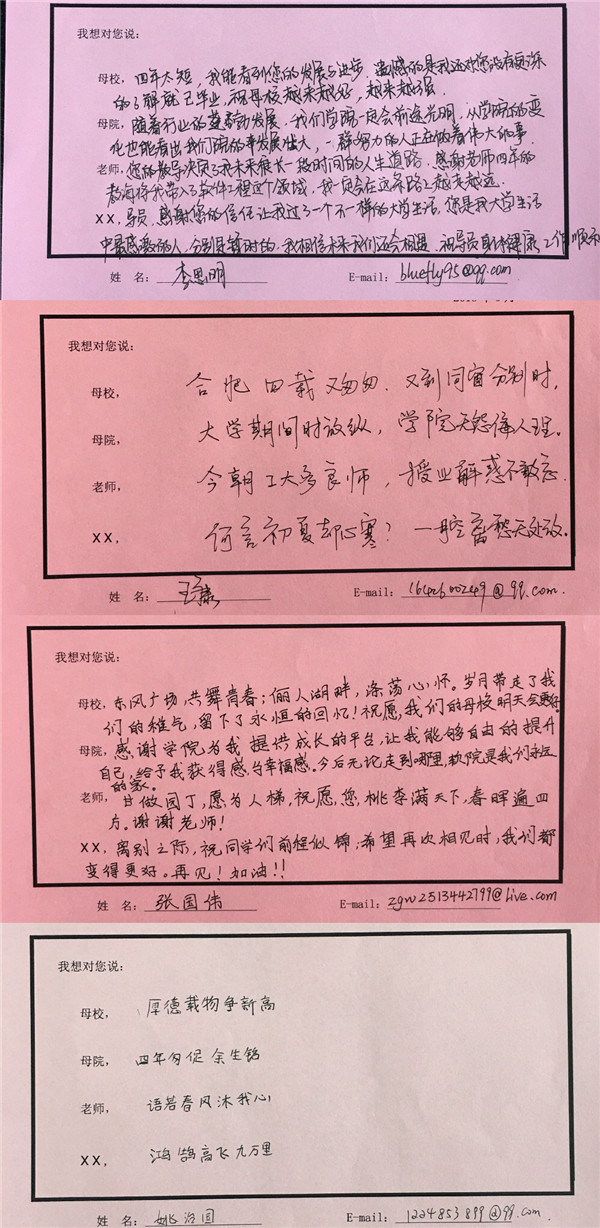 我想对您说:
母校, 四年太短,我能看到您的发展与进步,遗憾的是我还对您没有更深
的了解就已毕业,祝母校越来越好,越来越强。
母院, 随着行业的蓬勃发展,我们学院一定会前途光明,从学院的变
化也能看出我们院的事发展壮大,一群努力的人正在做着伟大的事。
老师, 您的教导决定了我未来很长一段时间的人生道路,感谢老师四年的
教诲将我带入了软件工程这个领域,我一定会在这条路上越走越远。
XX, 导员,感谢您的信任让我过了一个不一样的大学生活,您是我大学生活
中最感激的人,分别是暂时的,我相信未来我们还会相遇,祝导员身体健康工作顺利
姓 名: 李思明 E-mail: bluefly95@qq.com
我想对您说:
母校, 合肥四载又匆匆,又到同窗分别时,
母院, 大学期间时放纵,学院无怨诲人理。
老师, 今朝工大多良师,授业解惑不敢忘
XX, 何言初夏却心寒?一腔离愁无处放。
姓 名: E-mail: @qq.com.
我想对您说:
母校, 东风广场,共舞青春;俪人湖畔,涤荡心怀。岁月带走了我
们的稚气,留下了永恒的回忆!祝愿,我们的母校明天会更好
母院, 感谢学院为我提供成长的平台,让我能够自由的提升
自己,给予我获得感与幸福感。今后无论走到哪里,软院是我们永远
的家。
老师, 甘做园丁,愿为人梯,祝愿您,桃李满天下,春晖遍四
方。谢谢老师!
XX, 离别之际,祝同学们前程似锦;希望再次相见时,我们都
变得更好。再见!加油!!
姓 名: 张国伟 E-mail: zgw2513442799@live.com
我想对您说:
母校, 厚德载物争新高
母院, 四年匆促余生铭
老师, 语若春风沐我心
XX, 鸿鹄高飞九万里
姓 名: 姚治国 E-mail: 1224853899@qq.com